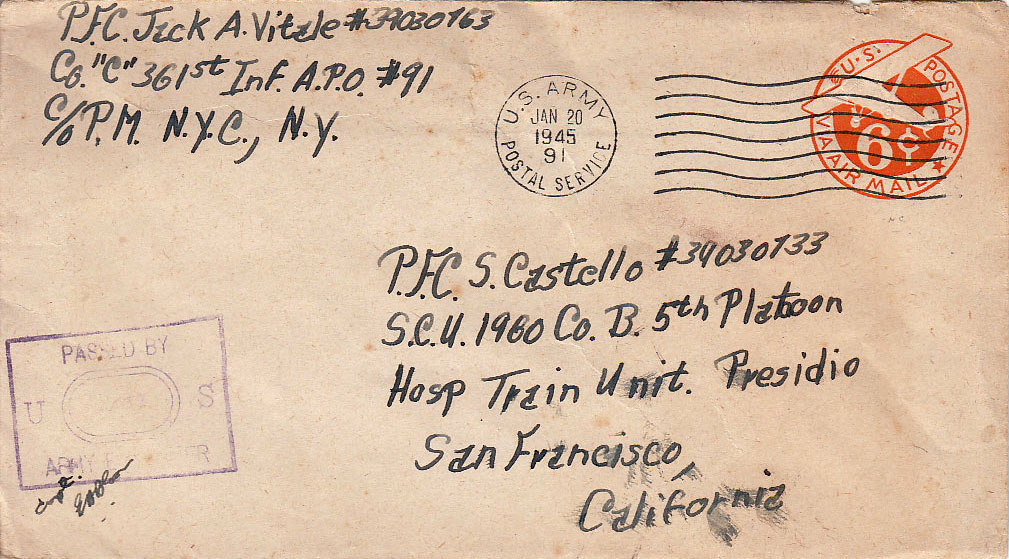 P.F.C. Jack A. Vitale #39030763
Co. "C" 361st Inf. A.P.O. #91
C/o P.M. N.Y.C., N.Y.
U.S. ARMY
JAN 20
1945
91
POSTAL SERVICE
U.S. POSTAGE
6¢
VIA AIR MAIL
P.F.C. S. Castello #39030733
S.C.U. 1960 Co. B. 5th Platoon
Hosp Train Unit. Presidio
San Francisco,
California
PASSED BY
U S
ARMY